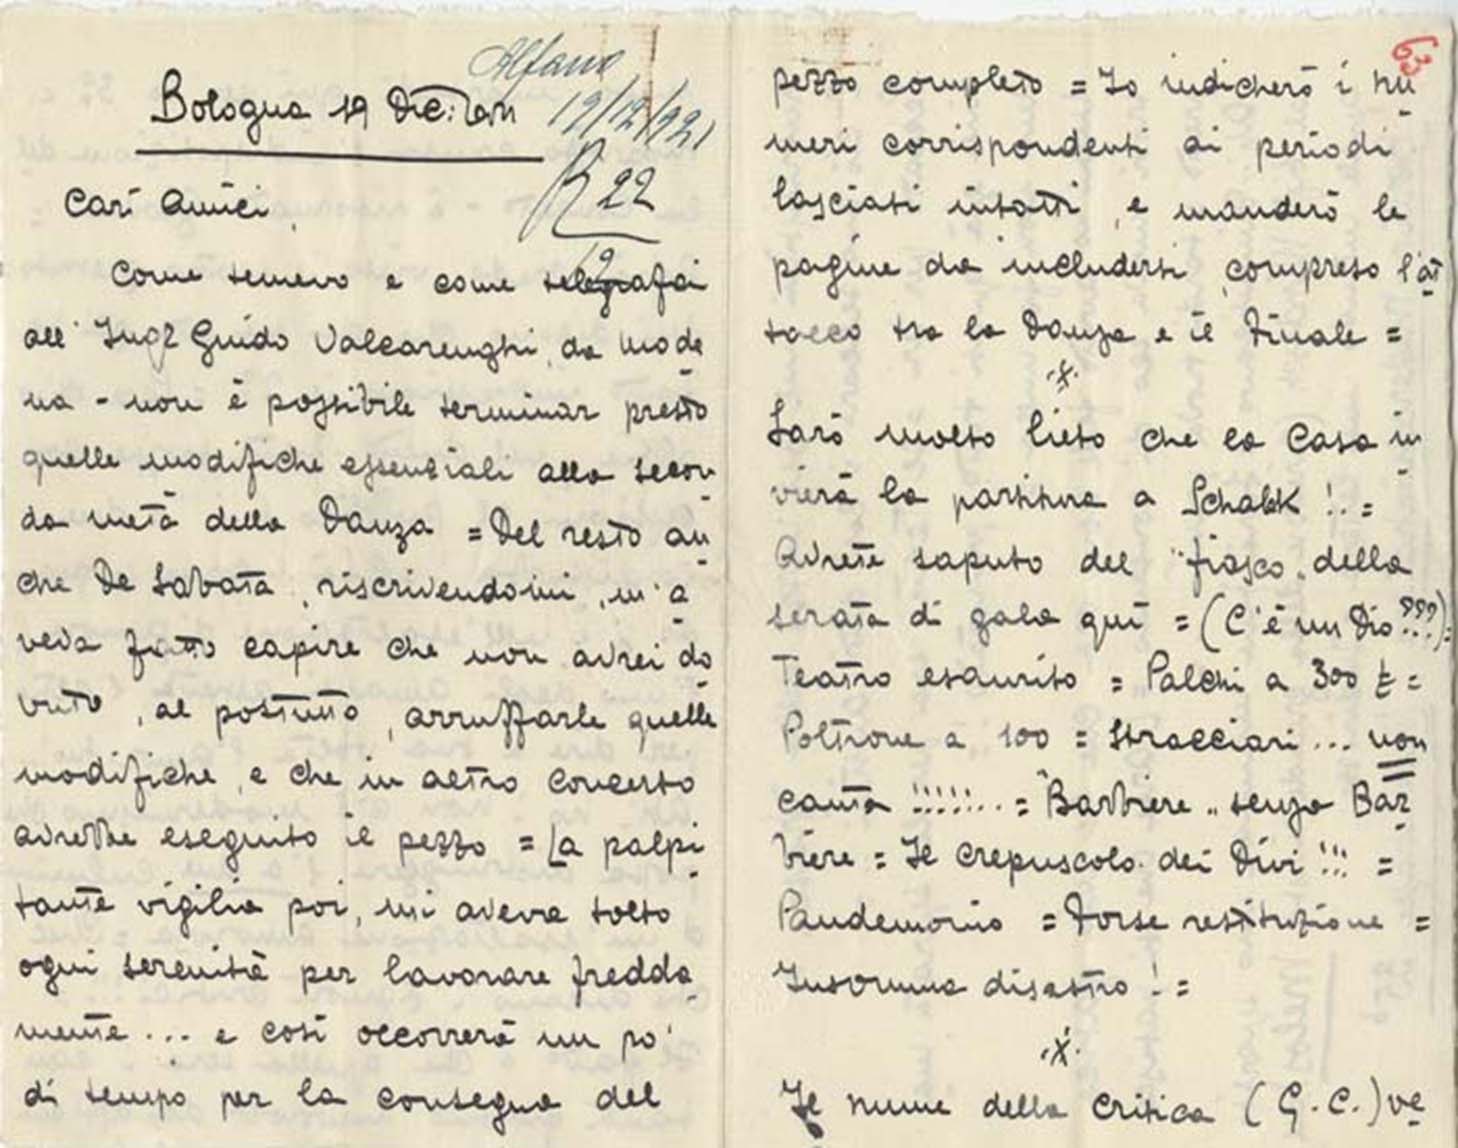 Alfano
19/12/921
R 22
Bologna 19 Dic:
Cari Amici,
Come temevo e come telegrafai
all' Ing? Guido Valcarenghi, da Mode
na - non è possibile terminar presto
quelle modifiche essenziali alla secon
da metà della Danza = Del resto an
che De Sabata, riscrivendomi, m'a
veva fatto capire che non avrei do
vuto, al postutto, arruffarle quelle
modifiche, e che in altro concerto
avrebbe eseguito il pezzo = La palpi
tante vigilia poi, mi aveva tolto
ogni serenità per lavorare fredda
mente ... e così occorrerà un po'
di tempo per la consegna del
63
pezzo completo = Io indicherò i nu
meri corrispondenti ai periodi
lasciati intatti, e manderò le
pagine da includersi, compreso l'at
tacco tra la Danza e il Finale =
.x.
Sarò molto lieto che la Casa in
vierà la partitura a Schalk !.. =
Avrete saputo del "fiasco" della
serata di gala qui = (C'è un Dio???) =
Teatro esaurito = Palchi a 300 £ =
Poltrone a 100 = Stracciari ... non
canta !!!!!!... = "Barbiere" senza Bar
biere = Il crepuscolo dei Divi !!! =
Pandemonio = Forse restituzione =
Insomma disastro ! =
.x.
Il nume della critica (G.C.) ve